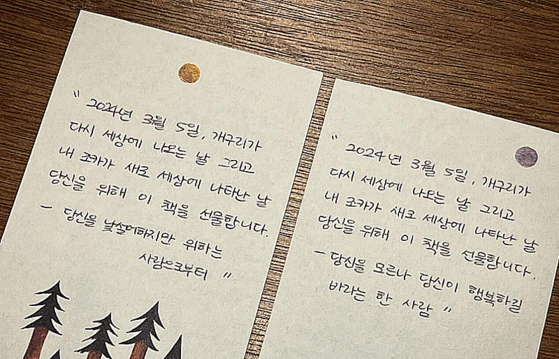 " 2024년 3월 5일, 개구리가
다시 세상에 나오는 날 그리고
내 조카가 새로 세상에 나타난 날
당신을 위해 이 책을 선물합니다.
- 당신을 낯설어하지만 위하는
사람으로부터 "
" 2024년 3월 5일, 개구리가
다시 세상에 나오는 날 그리고
내 조카가 새로 세상에 나타난 날
당신을 위해 이 책을 선물합니다.
- 당신을 모르나 당신이 행복하길
바라는 한 사람 "